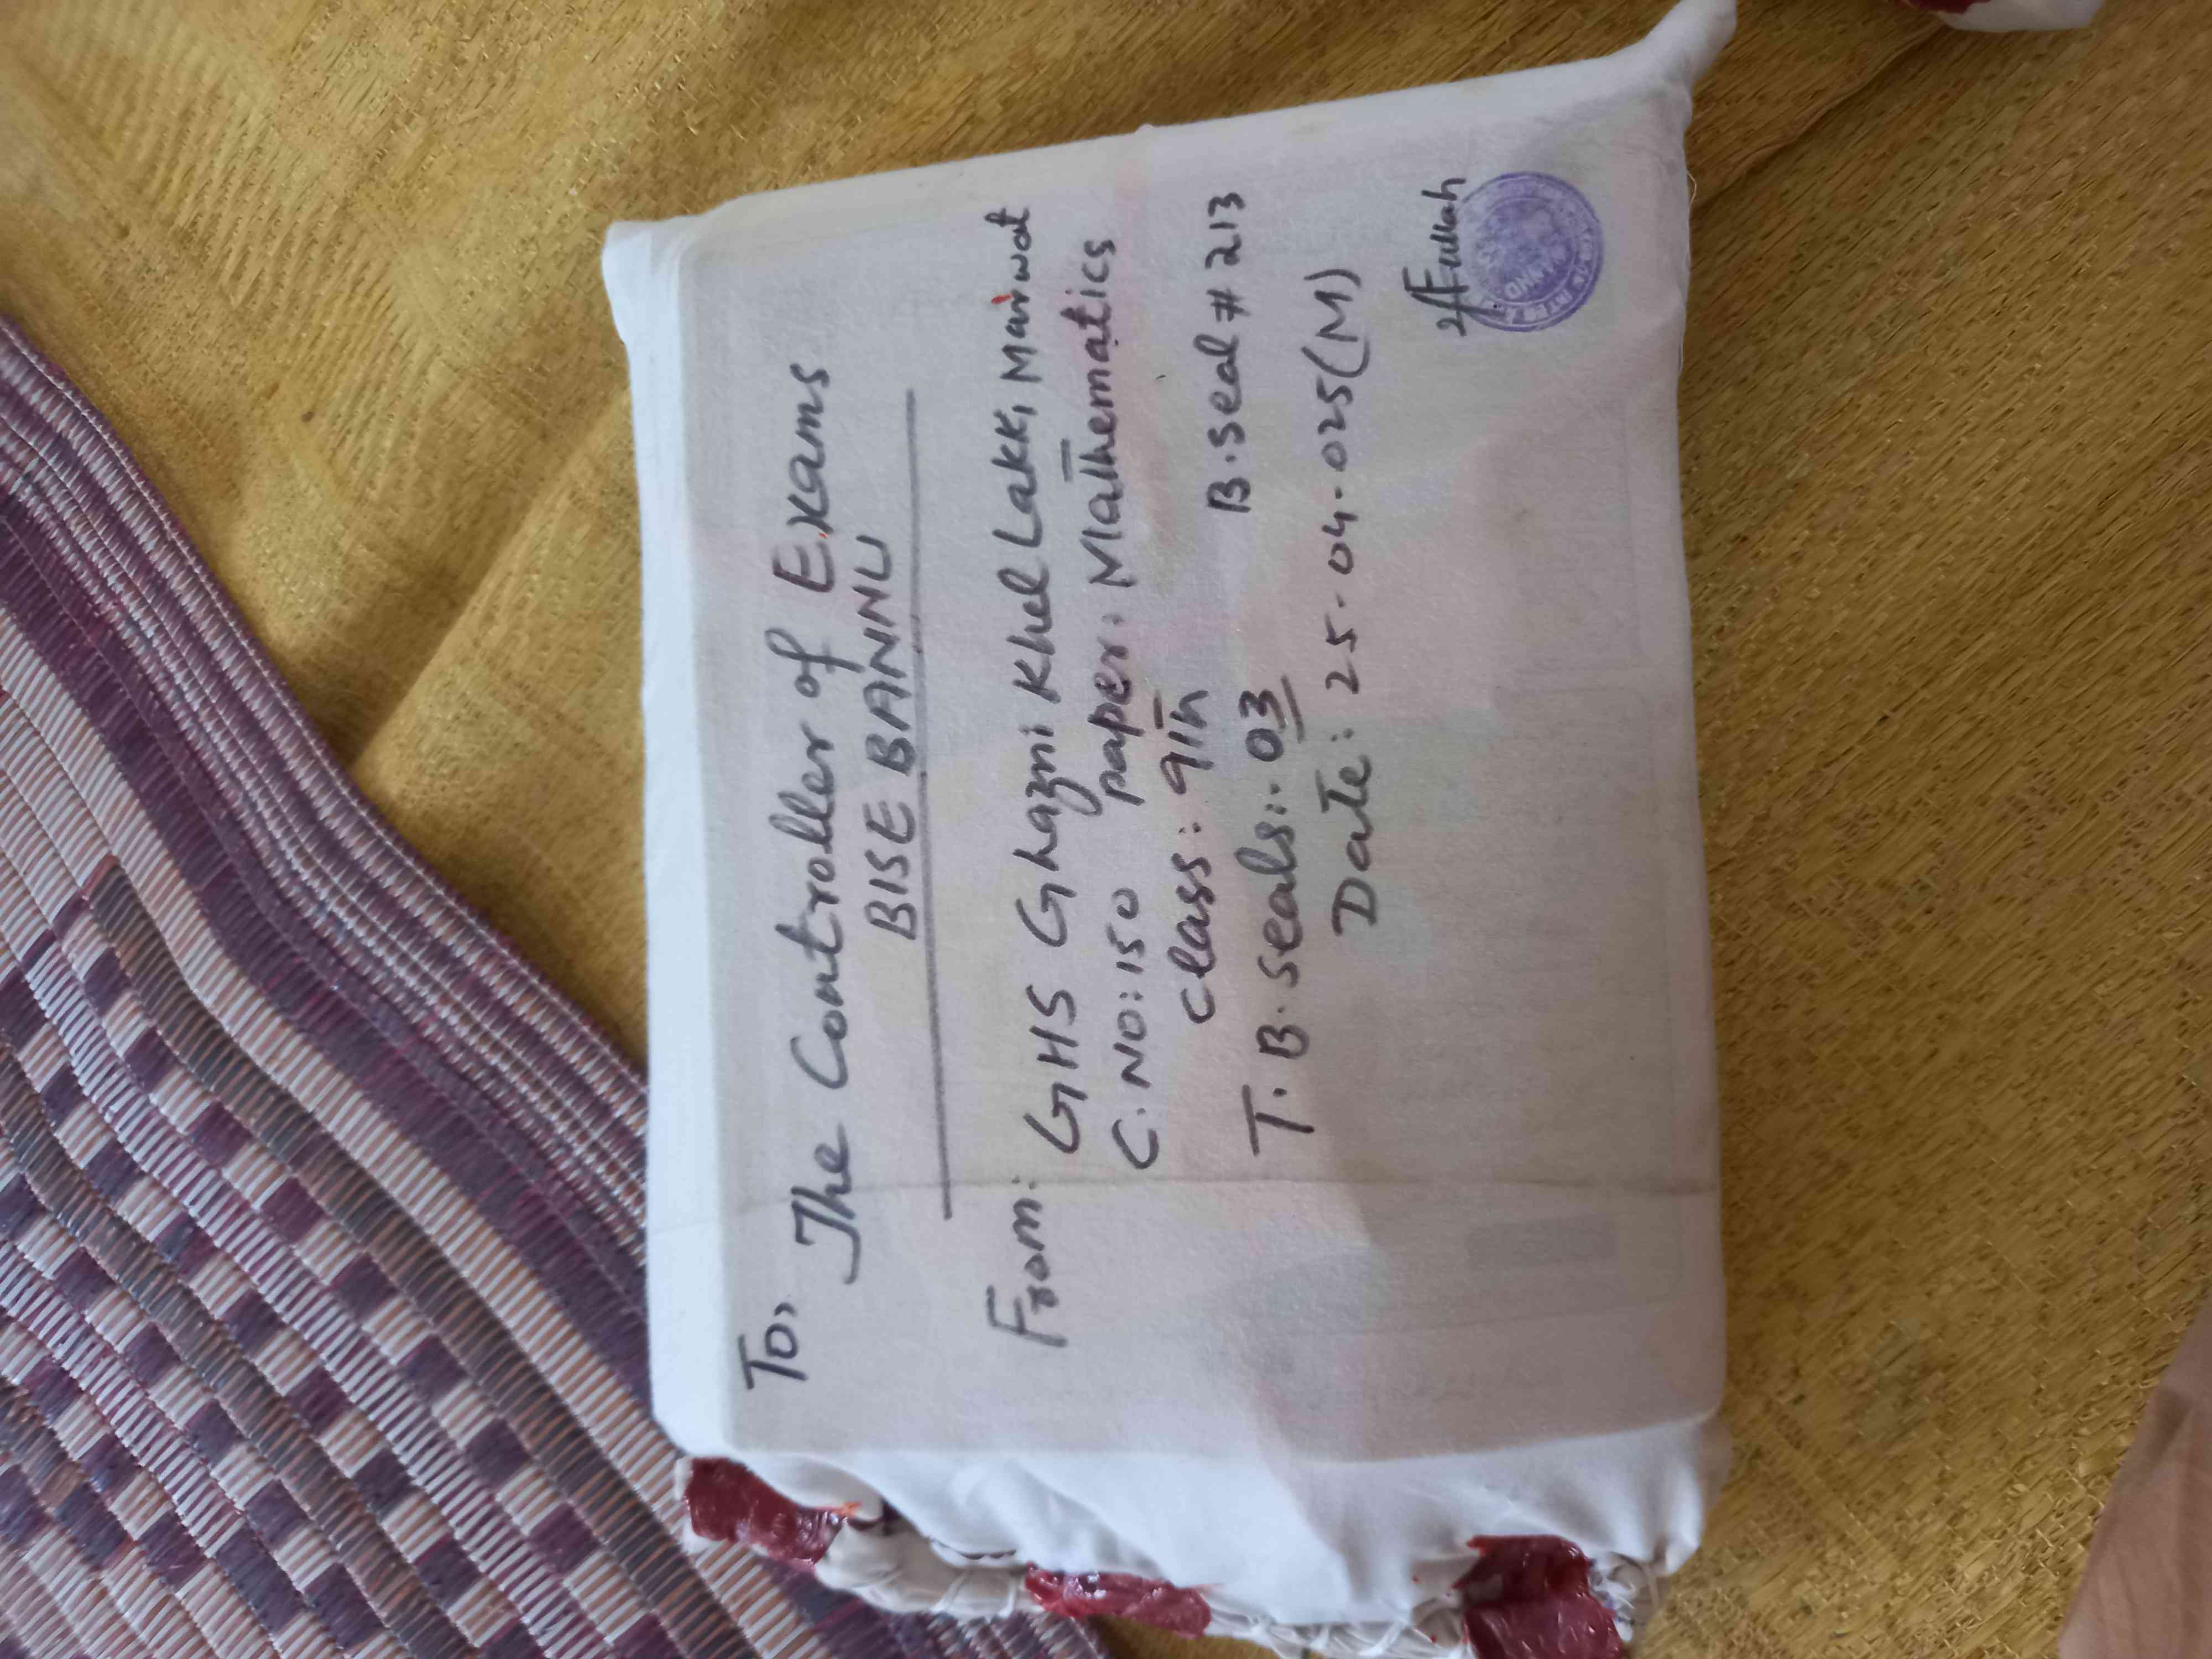 To,
The Controller of Exams
BISE BANNU
From: GHS Ghazni Khel Lakki Marwat
C.NO: 150 paper: Mathematics
Class: 9th
B.Seal # 213
T.B.Seals:- 03
Date: 25-04-025(M)